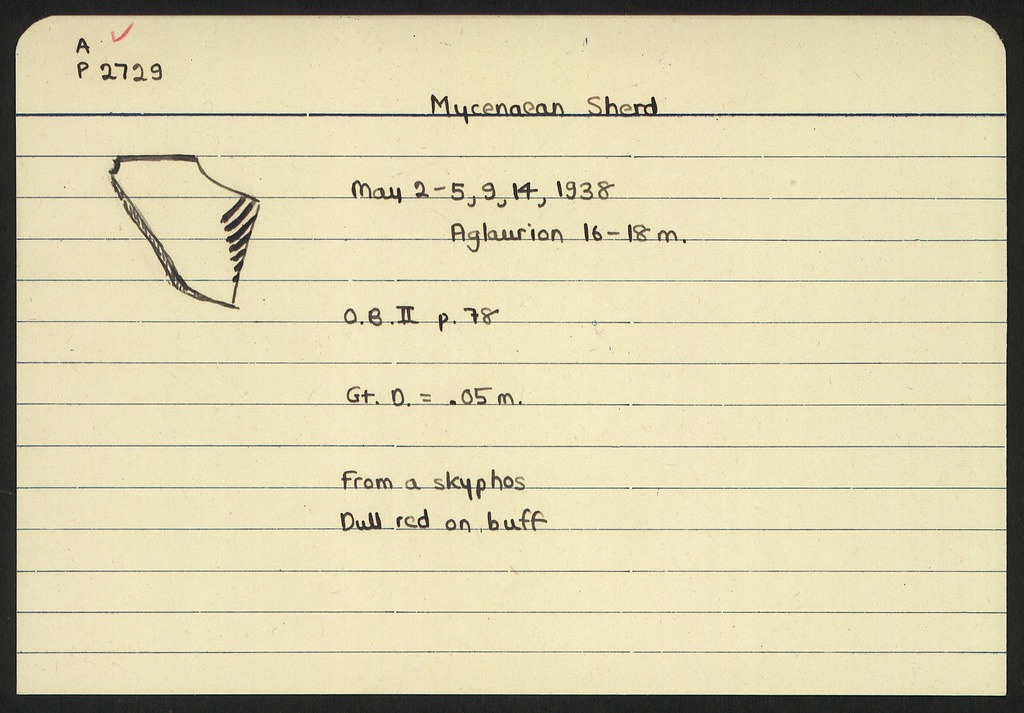 A
P 2729
Mycenaean Sherd
May 2-5, 9, 14, 1938
Aglaurion 16-18 m.
O.B. II p. 78
Gt. D. = .05 m.
From a skyphos
Dull red on buff